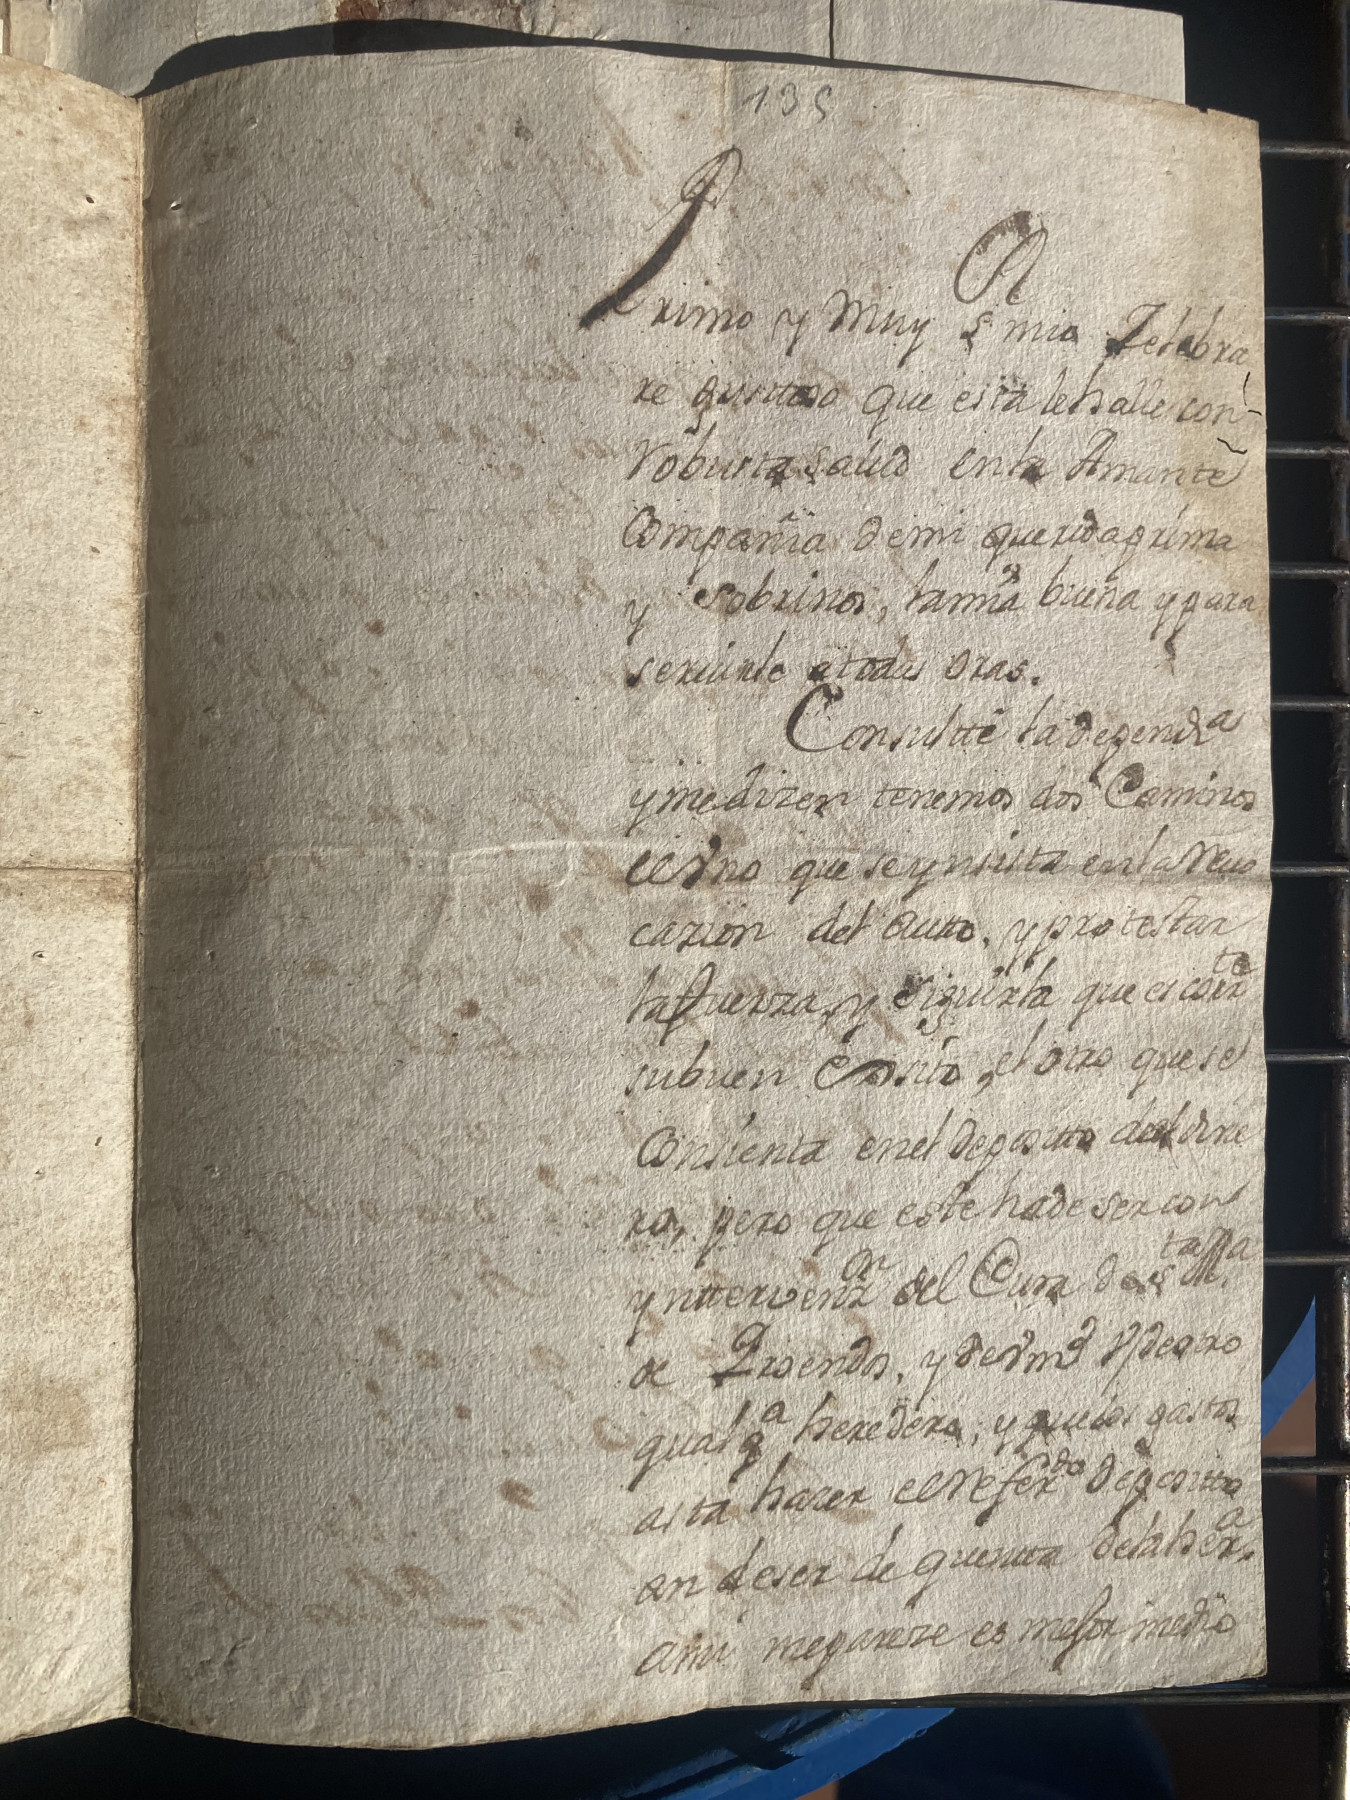 135
Primo y Muy Sr mio Zelebra
re gusttoso que esta le halle con
robusta salud en la Amante
Compañia de mi querida prima
y sobrinos, la mia buena y para
seruirle a todas oras.
Consultté la dependa
y me dizen tenemos dos Caminos
el Vno que se ynsista en la Reuo
cazion del autto, y protestar
la fuerza, y seguirla que es contte
su buen exsito, el otro que se
Consienta en el deposito del dine
ro, pero que este ha de ser con
ynttervenzn del Cura de Sta Ma
de Azoendos, y de Vmd V de otro
qualqa heredero, y que los gastos
asta hazer el Referdo deposittto
an de ser de quentta de la hera
a mi me pareze es mejor medio